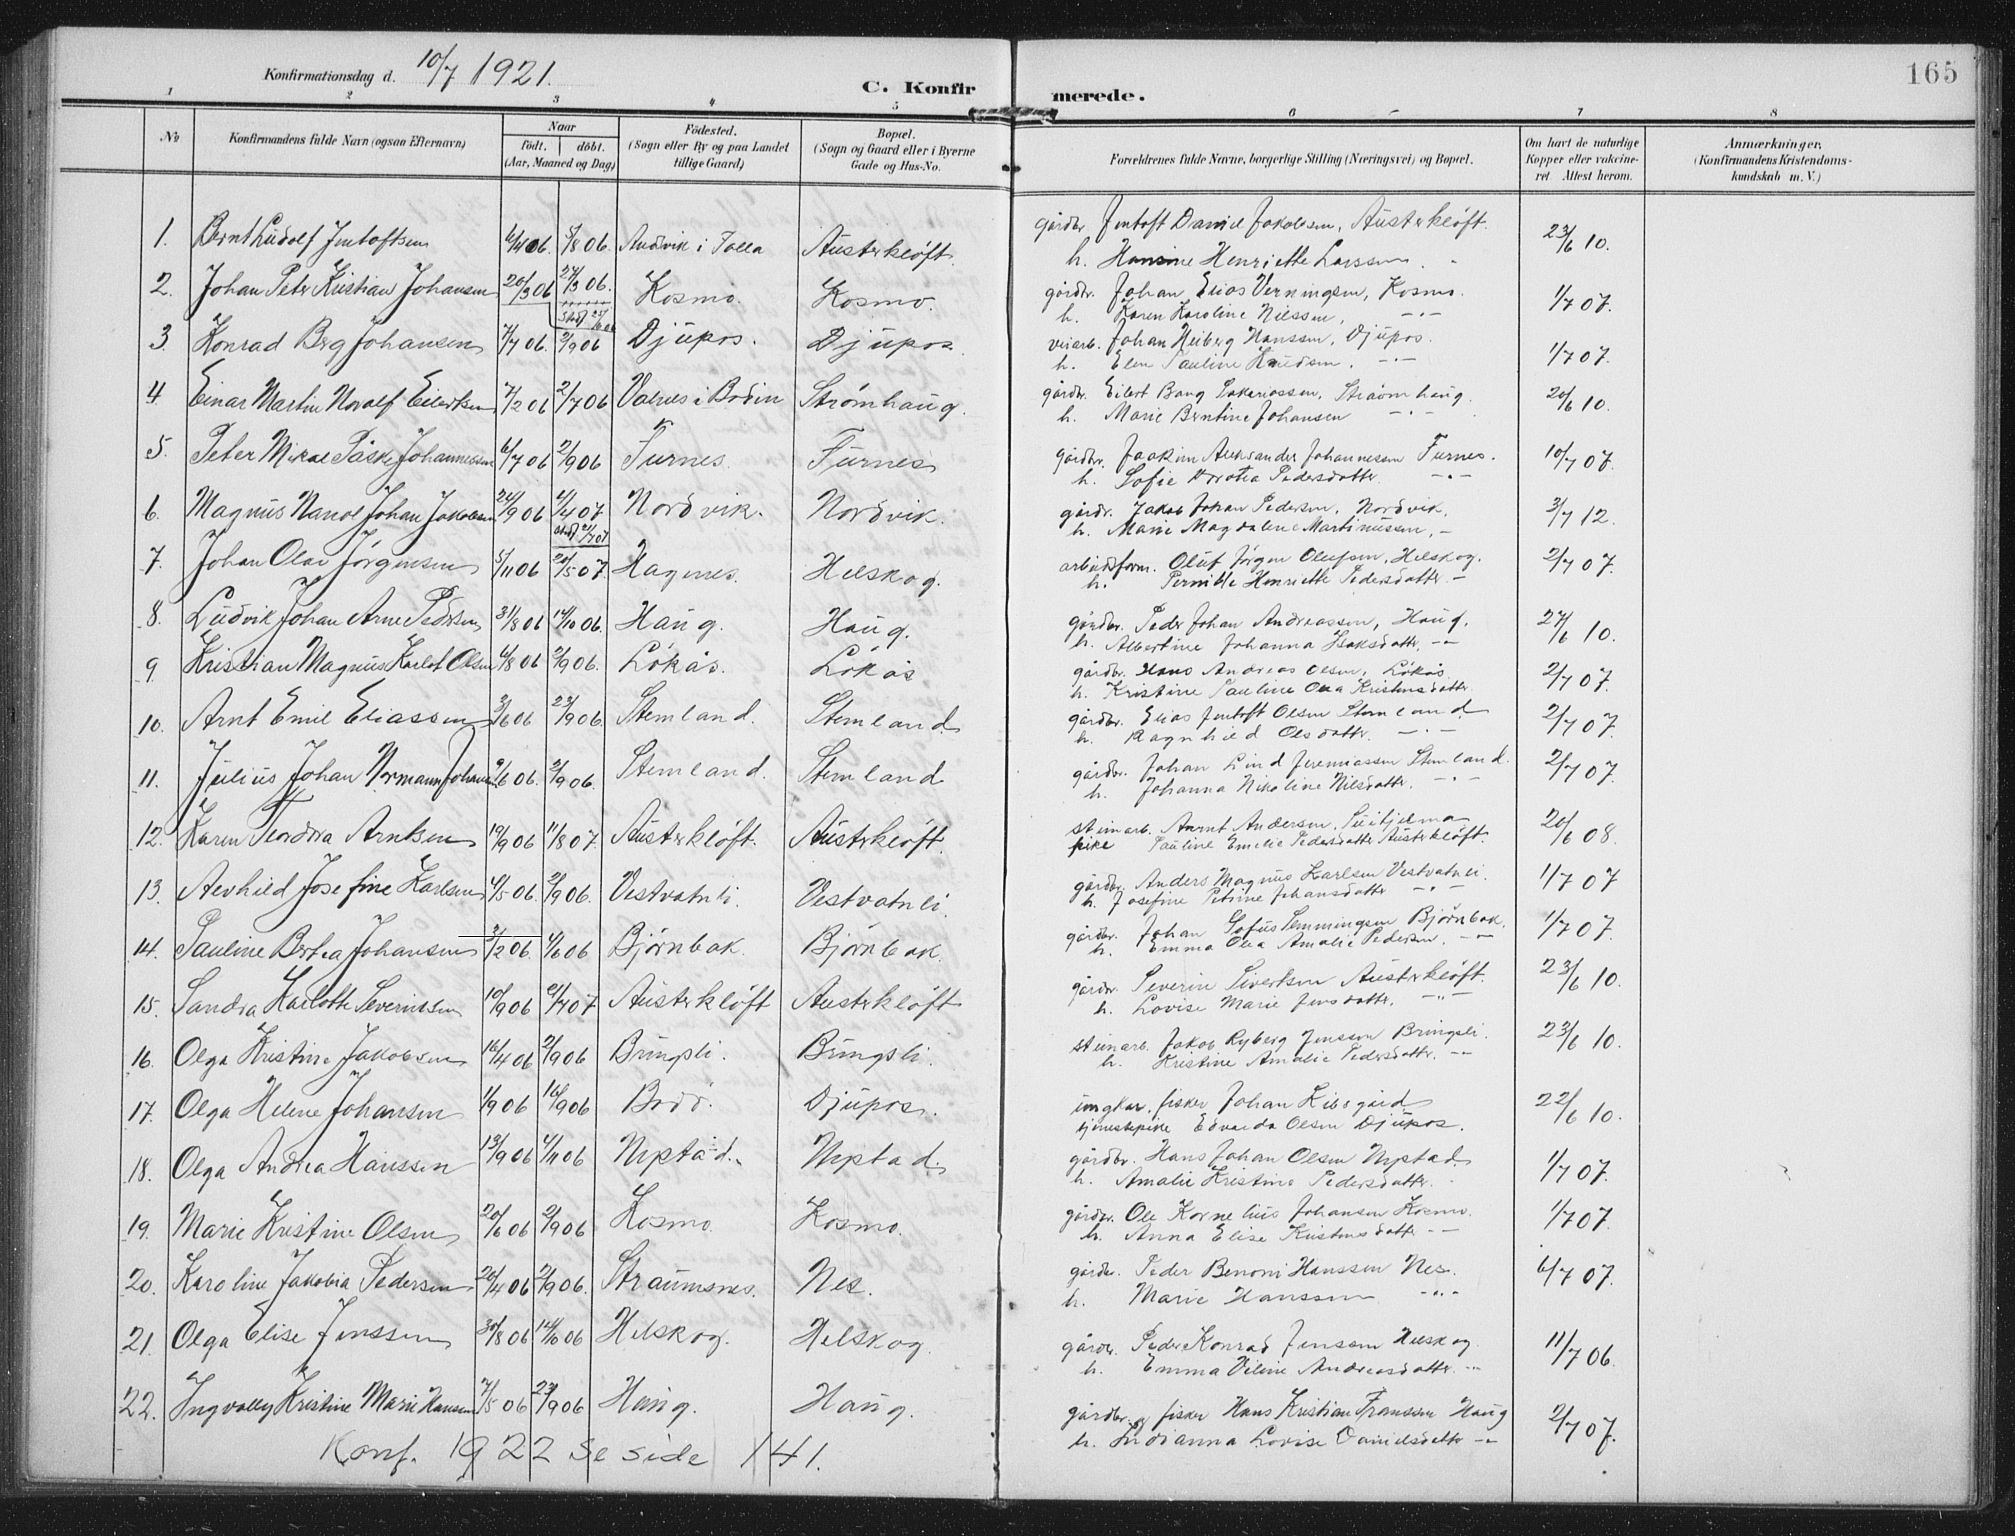 Konfirmationsdag d. 10/7 1921.
C. Konfirmerede.
165
1 2 3 4 5 6 7 8
No
Konfirmandens fulde Navn (ogsaa Efternavn)
Naar
födt. döbt.
(Aar, Maaned og Dag)
Födested.
(Sogn eller By og paa Landet
tillige Gaard)
Bopæl.
(Sogn og Gaard eller i Byerne
Gade og Hus-No.
Forældrenes fulde Navne, borgerlige Stilling (Næringsvei) og Bopæl.
Om havt de naturlige
Kopper eller vakcine-
ret. Attest herom.
Anmærkninger.
(Konfirmandens Kristendoms-
kundskab m. V.)
1. Bernt Ludolf Jentoftsen 06. 5/8 06. Andvik i Folla Austerkløft. gårdbr. Jentoft Daniel Jakobsen, Austerkløft. 23/6 10.
h. Hansine Henriette Larssen.
2. Johan Peter Kristian Johansen 20/3 06 27/3 06. Kosmo. Kosmo. gårdbr. Johan Elias Verningsen, Kosmo. 1/7 07.
h. Karen Karoline Nilssen, -"-
3. Konrad Berg Johansen 7/7 06. 2/9 06 Djupos. Djupos. veiarb. Johan Heiberg Hanssen, Djupos. 1/7 07.
h. Elen Pauline Knudsen. -"-
4. Einar Martin Noralf Eilertsen 7/2 06 2/7 06 Valnes i Bodin Strømhaug. gårdbr. Eilert Bang Sakariassen, Straumhaug. 20/6 10.
h. Marie Berntine Johansen -"-
5. Peter Mikal Påske Johannessen 6/7 06 2/9 06 Furnes. Furnes gårdbr. Joakim Aleksander Johannessen Furnes. 10/7 07.
h. Sofie Dorotea Pedersdatter. -"-
6. Magnus Nanol Johan Jakobsen 24/9 06 4/4 07 Nordvik. Nordvik. gårdbr. Jakob Johan Pedersen, Nordvik. 3/7 12.
h. Marie Magdalene Martinussen, -
7. Johan Olav Jørgensen 5/11 06 20/5 07. Hagenes. Helskog. arbeidsform. Oluf Jørgen Olufsen, Helskog. 2/7 07.
h. Pernille Henriette Pedersdatter -
8. Ludvik Johan Arne Pedersen 31/8 06 14/10 06. Haug. Haug. gårdbr. Peder Johan Andreassen, Haug. 27/6 10.
h. Albertine Johanna Isaksdatter, -"-
9. Kristian Magnus Karlot Olsen 4/8 06 2/9 06. Løkås. Løkås gårdbr. Hans Andreas Olsen, Løkås 2/7 07.
h. Kristine Pauline Olea Kristensdatter
10. Arnt Emil Eliassen 3/6 06 23/9 06. Stemland. Stemland gårdbr. Elias Jentoft Olsen Stemland 2/7 07.
h. Ragnhild Olsdatter. -"-
11. Julius Johan Normann Johansen 9/6 06. 2/9 06. Stemland. Stemland gårdbr. Johan Lind Jeremiassen Stemland. 2/7 07.
h. Johanna Nikoline Nilsdatter. -"-
12. Karen Teodora Arntsen 19/9 06 11/8 07. Austerkløft. Austerkløft. stenarb. Arnt Andersen, Sulitjelma 20/6 08.
pike Pauline Emelie Pedersdatter Austerkløft.
13. Arnhild Josefine Karlsen 4/5 06. 2/9 06. Vestvatnli. Vestvatnli. gårdbr. Anders Magnus Karlsen Vestvatnli. 1/7 07
h. Josefine Petrine Johansdatter -"-
14. Pauline Bertea Johansen 2/2 06. 4/6 06 Bjørnbak. Bjørnbak. gårdbr. Johan Sofus Lemmingsen Bjørnbak. 1/7 07.
h. Emma Olea Amalie Pedersen. -"-
15. Sandra Karlotte Severinsen 10/9 06 21/7 07 Austerkløft Austerkløft gårdbr. Severin Sivertsen Austerkløft. 23/6 10.
h. Lovise Marie Jensdatter. -"-
16. Olga Kristine Jakobsen 16/4 06 2/9 06 Bringsli. Bringsli. stenarb. Jakob Ryberg Jenssen Bringsli. 23/6 10.
h. Kristine Amalie Pedersdatter. -"-
17. Olga Helene Johansen 1/9 06 16/9 06 Bodø. Djupos. ungkar, fisker Johan Kibsgård 22/6 10.
tjenestepike Edvarda Olsen Djupos.
18. Olga Andrea Hanssen 13/9 06 4/11 06 Neptad. Neptad. gårdbr. Hans Johan Olsen Neptad. 1/7 07.
h. Amalie Kristine Pedersdatter.
19. Marie Kristine Olsen 20/6 06 2/9 06 Kosmo. Kosmo. gårdbr. Ole Kornelius Johansen Kosmo. 1/7 07.
h. Anna Elise Kristensdatter -"-
20. Karoline Jakobia Pedersen. 20/4 06 2/9 06. Straumsnes. Nes. gårdbr. Peder Benoni Hanssen Nes. 6/7 07.
h. Marie Hanssen -"-
21. Olga Elise Jenssen 30/8 06 14/10 06 Helskog. Helskog. gårdbr. Peder Konrad Jenssen Helskog 11/7 06.
h. Emma Viline Andreasdatter. -"-
22. Ingvolly Kristine Marie Hansen 7/5 06 23/9 06 Haug. Haug. gårdbr. og fisker Hans Kristian Franssen Haug 2/7 07.
h. Indianna Lovise Danielsdatter -"-
Konf. 1922 se side 141.